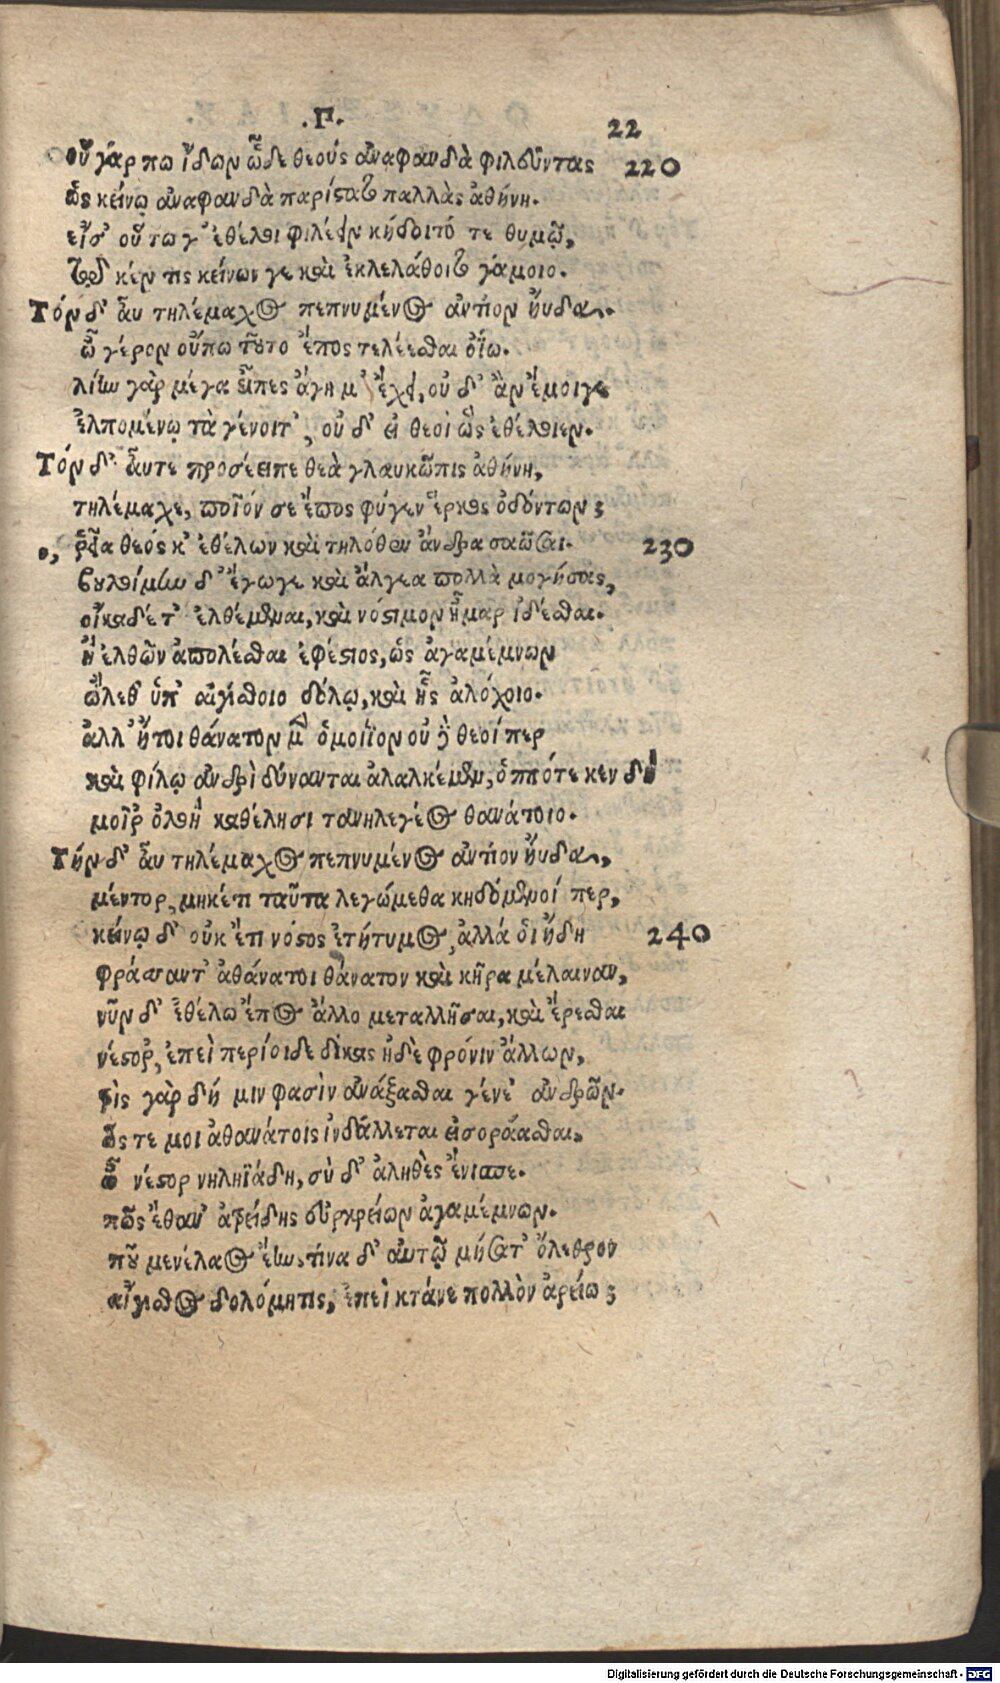 .Γ. 22
Οὐ γάρ πω ἴδον ὧδε θεοὺς ἀναφανδὰ φιλοῦντας 220
ὡς κείνῳ ἀναφανδὰ παρίστατο παλλὰς ἀθήνη.
εἴ σ' οὕτω γ' ἐθέλοι φιλέειν κήδοιτό τε θυμῷ,
τῷ κέν τις κείνων γε καὶ ἐκλελάθοιτο γάμοιο.
Τόν δ' αὖ τηλέμαχος πεπνυμένος ἀντίον ηὔδα.
ὦ γέρον οὔπω τοῦτο ἔπος τελέεσθαι ὀΐω.
λίην γὰρ μέγα εἶπες ἄγη μ' ἔχει, οὐ δ' ἂν ἔμοιγε
ἐλπομένῳ τὰ γένοιτ', οὐ δ' εἰ θεοὶ ὣς ἐθέλοιεν.
Τόν δ' αὖτε προσέειπε θεὰ γλαυκῶπις ἀθήνη,
τηλέμαχε, ποῖόν σε ἔπος φύγεν ἕρκος ὀδόντων;
ο, ῥεῖα θεός κ' ἐθέλων καὶ τηλόθεν ἄνδρα σαῶσαι. 230
βουλοίμην δ' ἔγωγε καὶ ἄλγεα πολλὰ μογήσας,
οἴκαδέ τ' ἐλθέμεναι, καὶ νόστιμον ἦμαρ ἰδέσθαι.
ἢ ἐλθὼν ἀπολέσθαι ἐφέστιος, ὡς ἀγαμέμνων
ὤλεθ' ὑπ' αἰγίσθοιο δόλῳ, καὶ ἧς ἀλόχοιο.
ἀλλ' ἤτοι θάνατον μὲν ὁμοίϊον οὐδὲ θεοί περ
καὶ φίλῳ ἀνδρὶ δύνανται ἀλαλκέμεν, ὁππότε κεν δὴ
μοῖρ' ὀλοὴ καθέλησι τανηλεγέος θανάτοιο.
Τήν δ' αὖ τηλέμαχος πεπνυμένος ἀντίον ηὔδα,
μέντορ, μηκέτι ταῦτα λεγώμεθα κηδόμενοί περ,
κείνῳ δ' οὐκ ἔτι νόστος ἐτήτυμος, ἀλλά οἱ ἤδη 240
φράσσαντ' ἀθάνατοι θάνατον καὶ κῆρα μέλαιναν,
νῦν δ' ἐθέλω ἔπος ἄλλο μεταλλῆσαι, καὶ ἔρεσθαι
νέστορ', ἐπεὶ περίοιδε δίκας ἠδὲ φρόνιν ἄλλων,
τρὶς γὰρ δή μιν φασὶν ἀνάξασθαι γένε' ἀνδρῶν.
ὥς τε μοι ἀθανάτοις ἰνδάλλεται εἰσοράασθαι.
ὦ νέστορ νηληϊάδη, σὺ δ' ἀληθὲς ἔνισπε.
πῶς ἔθαν' ἀτρείδης εὐρυκρείων ἀγαμέμνων.
ποῦ μενέλαος ἔην, τίνα δ' αὐτῷ μήσατ' ὄλεθρον
αἴγισθος δολόμητις, ἐπεὶ κτάνε πολλὸν ἀρείω;
Digitalisierung gefördert durch die Deutsche Forschungsgemeinschaft - DFG